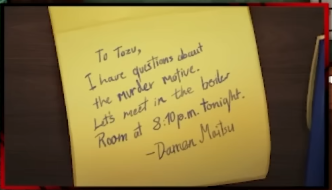 To Tozu,
I have questions about
the murder motive.
Let's meet in the border
Room at 8:10p.m. tonight.
-Damon Maitsu